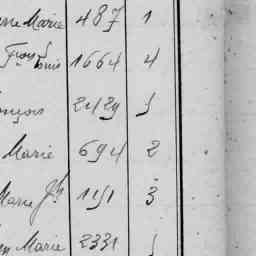 Marie 487 1
Franç Louis 1664 4
ançois 2429 5
Marie 694 2
Marie Jh 1151 3
Marie 2331